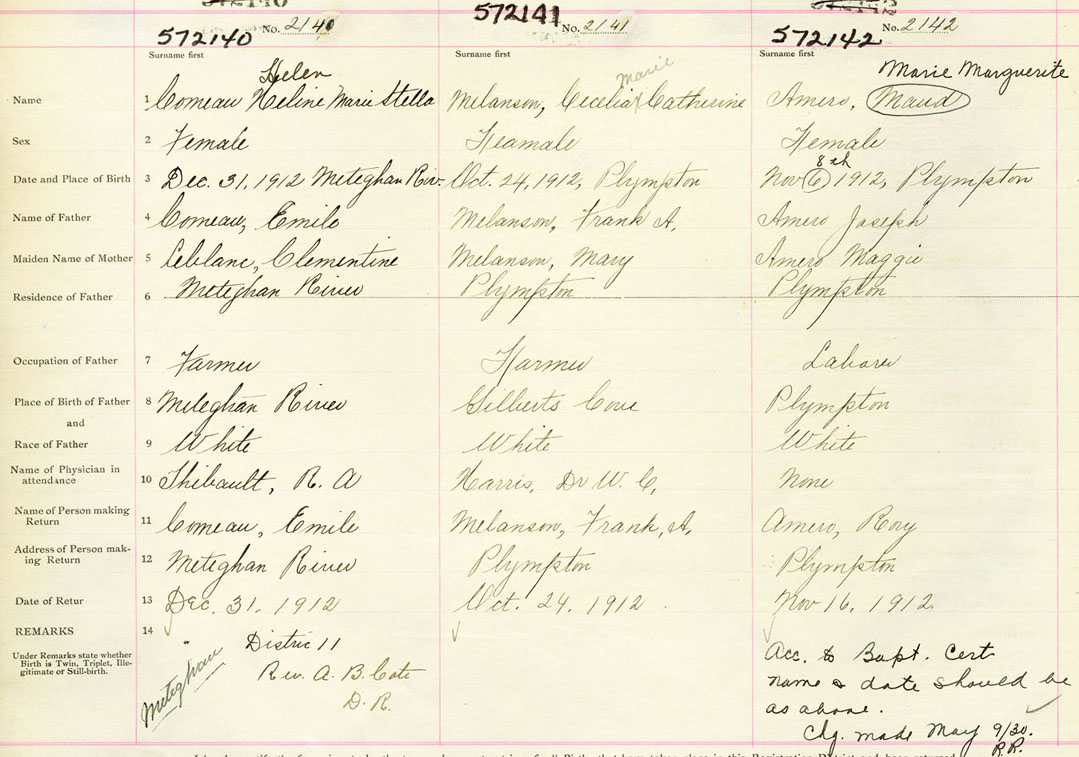 572140 No. 2140 572141 No. 2141 572142 No. 2142
Surname first Surname first Surname first
Helen Marie Marie Marguerite
Name 1 Comeau Heline Marie Stella Melanson, Cecelia Catherine Amero, Maud
Sex 2 Female Feamale Female
8th
Date and Place of Birth 3 Dec. 31, 1912 Meteghan Riv. Oct. 24, 1912, Plympton Nov 6 1912, Plympton
Name of Father 4 Comeau, Emile Melanson, Frank A. Amero Joseph
Maiden Name of Mother 5 Leblanc, Clementine Melanson, Mary Amero Maggie
Residence of Father 6 Meteghan River Plympton Plympton
Occupation of Father 7 Farmer Farmer Laborer
Place of Birth of Father 8 Meteghan River Gilberts Cove Plympton
and
Race of Father 9 White White White
Name of Physician in
attendance 10 Thibault, R. A Harris, Dr W. C. None
Name of Person making
Return 11 Comeau, Emile Melanson, Frank, A. Amero, Rory
Address of Person mak-
ing Return 12 Meteghan River Plympton Plympton
Date of Retur 13 Dec. 31, 1912 Oct. 24, 1912 Nov 16, 1912
REMARKS 14
Under Remarks state whether
Birth is Twin, Triplet, Ille-
gitimate or Still-birth.
Meteghan
Distric 11
Rev. A. B. Cote
D. R.
Acc. to Bapt. Cert
name & date should be
as above.
Chg. made May 9/30.
R.R.